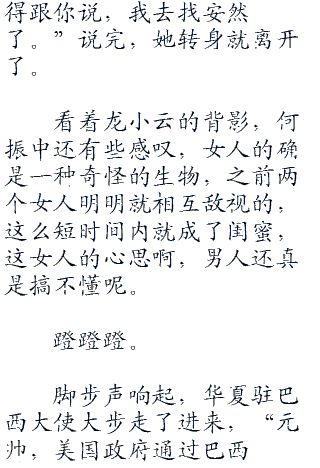 得跟你说，我去找安然
了。”说完，她转身就离开
了。
看着龙小云的背影，何
振中还有些感叹，女人的确
是一种奇怪的生物，之前两
个女人明明就相互敌视的，
这么短时间内就成了闺蜜，
这女人的心思啊，男人还真
是搞不懂呢。
蹬蹬蹬。
脚步声响起，华夏驻巴
西大使大步走了进来，“元
帅，美国政府通过巴西